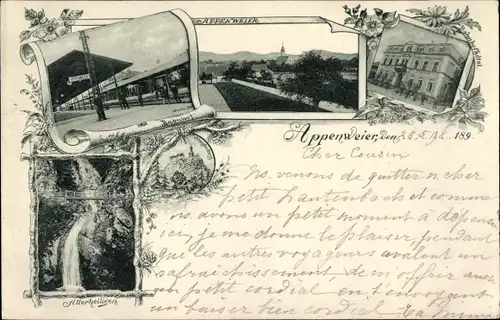 APPENWEIER
Bahnhof
Appenweier, den 189
Cher Cousin
Ns. venons de quitter n. cher
petit Lautenbach et comme
ns. avons un petit moment à dépenser
ici, je me donne le plaisir, pendant
que les autres voyageurs avalent un
rafraîchissement, de m'offrir aussi
un petit cordial en t'envoyant
un baiser bien cordial
Allerheiligen